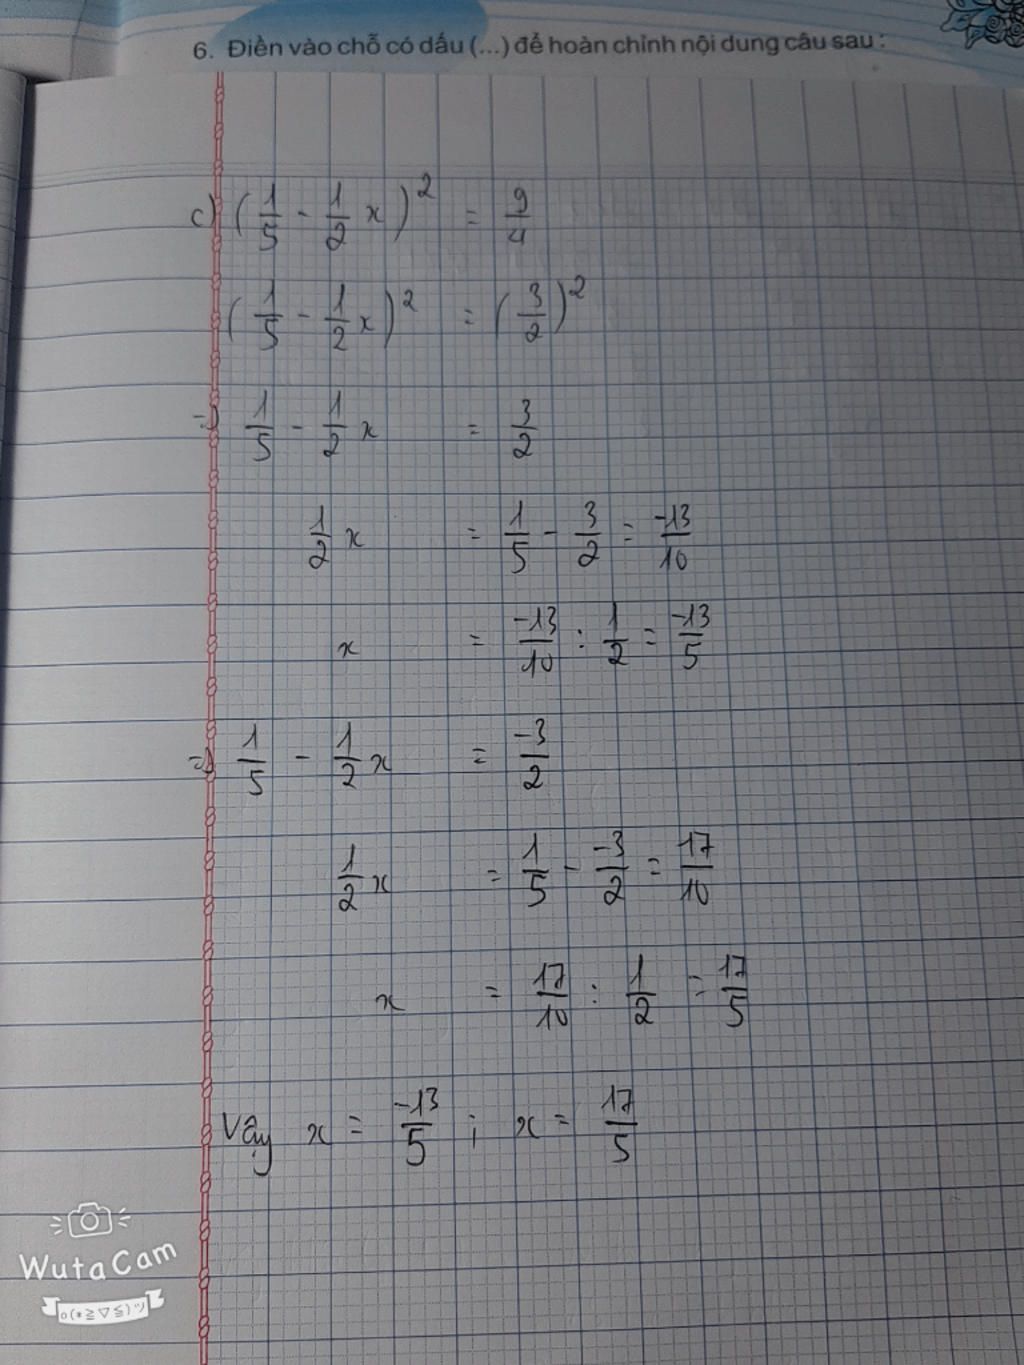 6. Điền vào chỗ có dấu (...) để hoàn chỉnh nội dung câu sau :
c) (1/5 - 1/2 x)² = 9/4
(1/5 - 1/2 x)² = (3/2)²
=> 1/5 - 1/2 x = 3/2
1/2 x = 1/5 - 3/2 = -13/10
x = -13/10 : 1/2 = -13/5
=> 1/5 - 1/2 x = -3/2
1/2 x = 1/5 - -3/2 = 17/10
x = 17/10 : 1/2 = 17/5
Vậy x = -13/5 ; x = 17/5
WutaCam
o(*≧▽≦)ツ